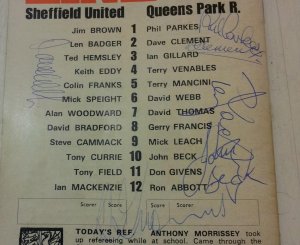 Sheffield United Queens Park R.
Jim BROWN 1 Phil PARKES
Len BADGER 2 Dave CLEMENT
Ted HEMSLEY 3 Ian GILLARD
Keith EDDY 4 Terry VENABLES
Colin FRANKS 5 Terry MANCINI
Mick SPEIGHT 6 David WEBB
Alan WOODWARD 7 David THOMAS
David BRADFORD 8 Gerry FRANCIS
Steve CAMMACK 9 Mick LEACH
Tony CURRIE 10 John BECK
Tony FIELD 11 Don GIVENS
Ian MACKENZIE 12 Ron ABBOTT
Scorer Scorer Scorer Scorer
TODAY'S REF. ANTHONY MORRISSEY took
up refereeing while at school. Came through the